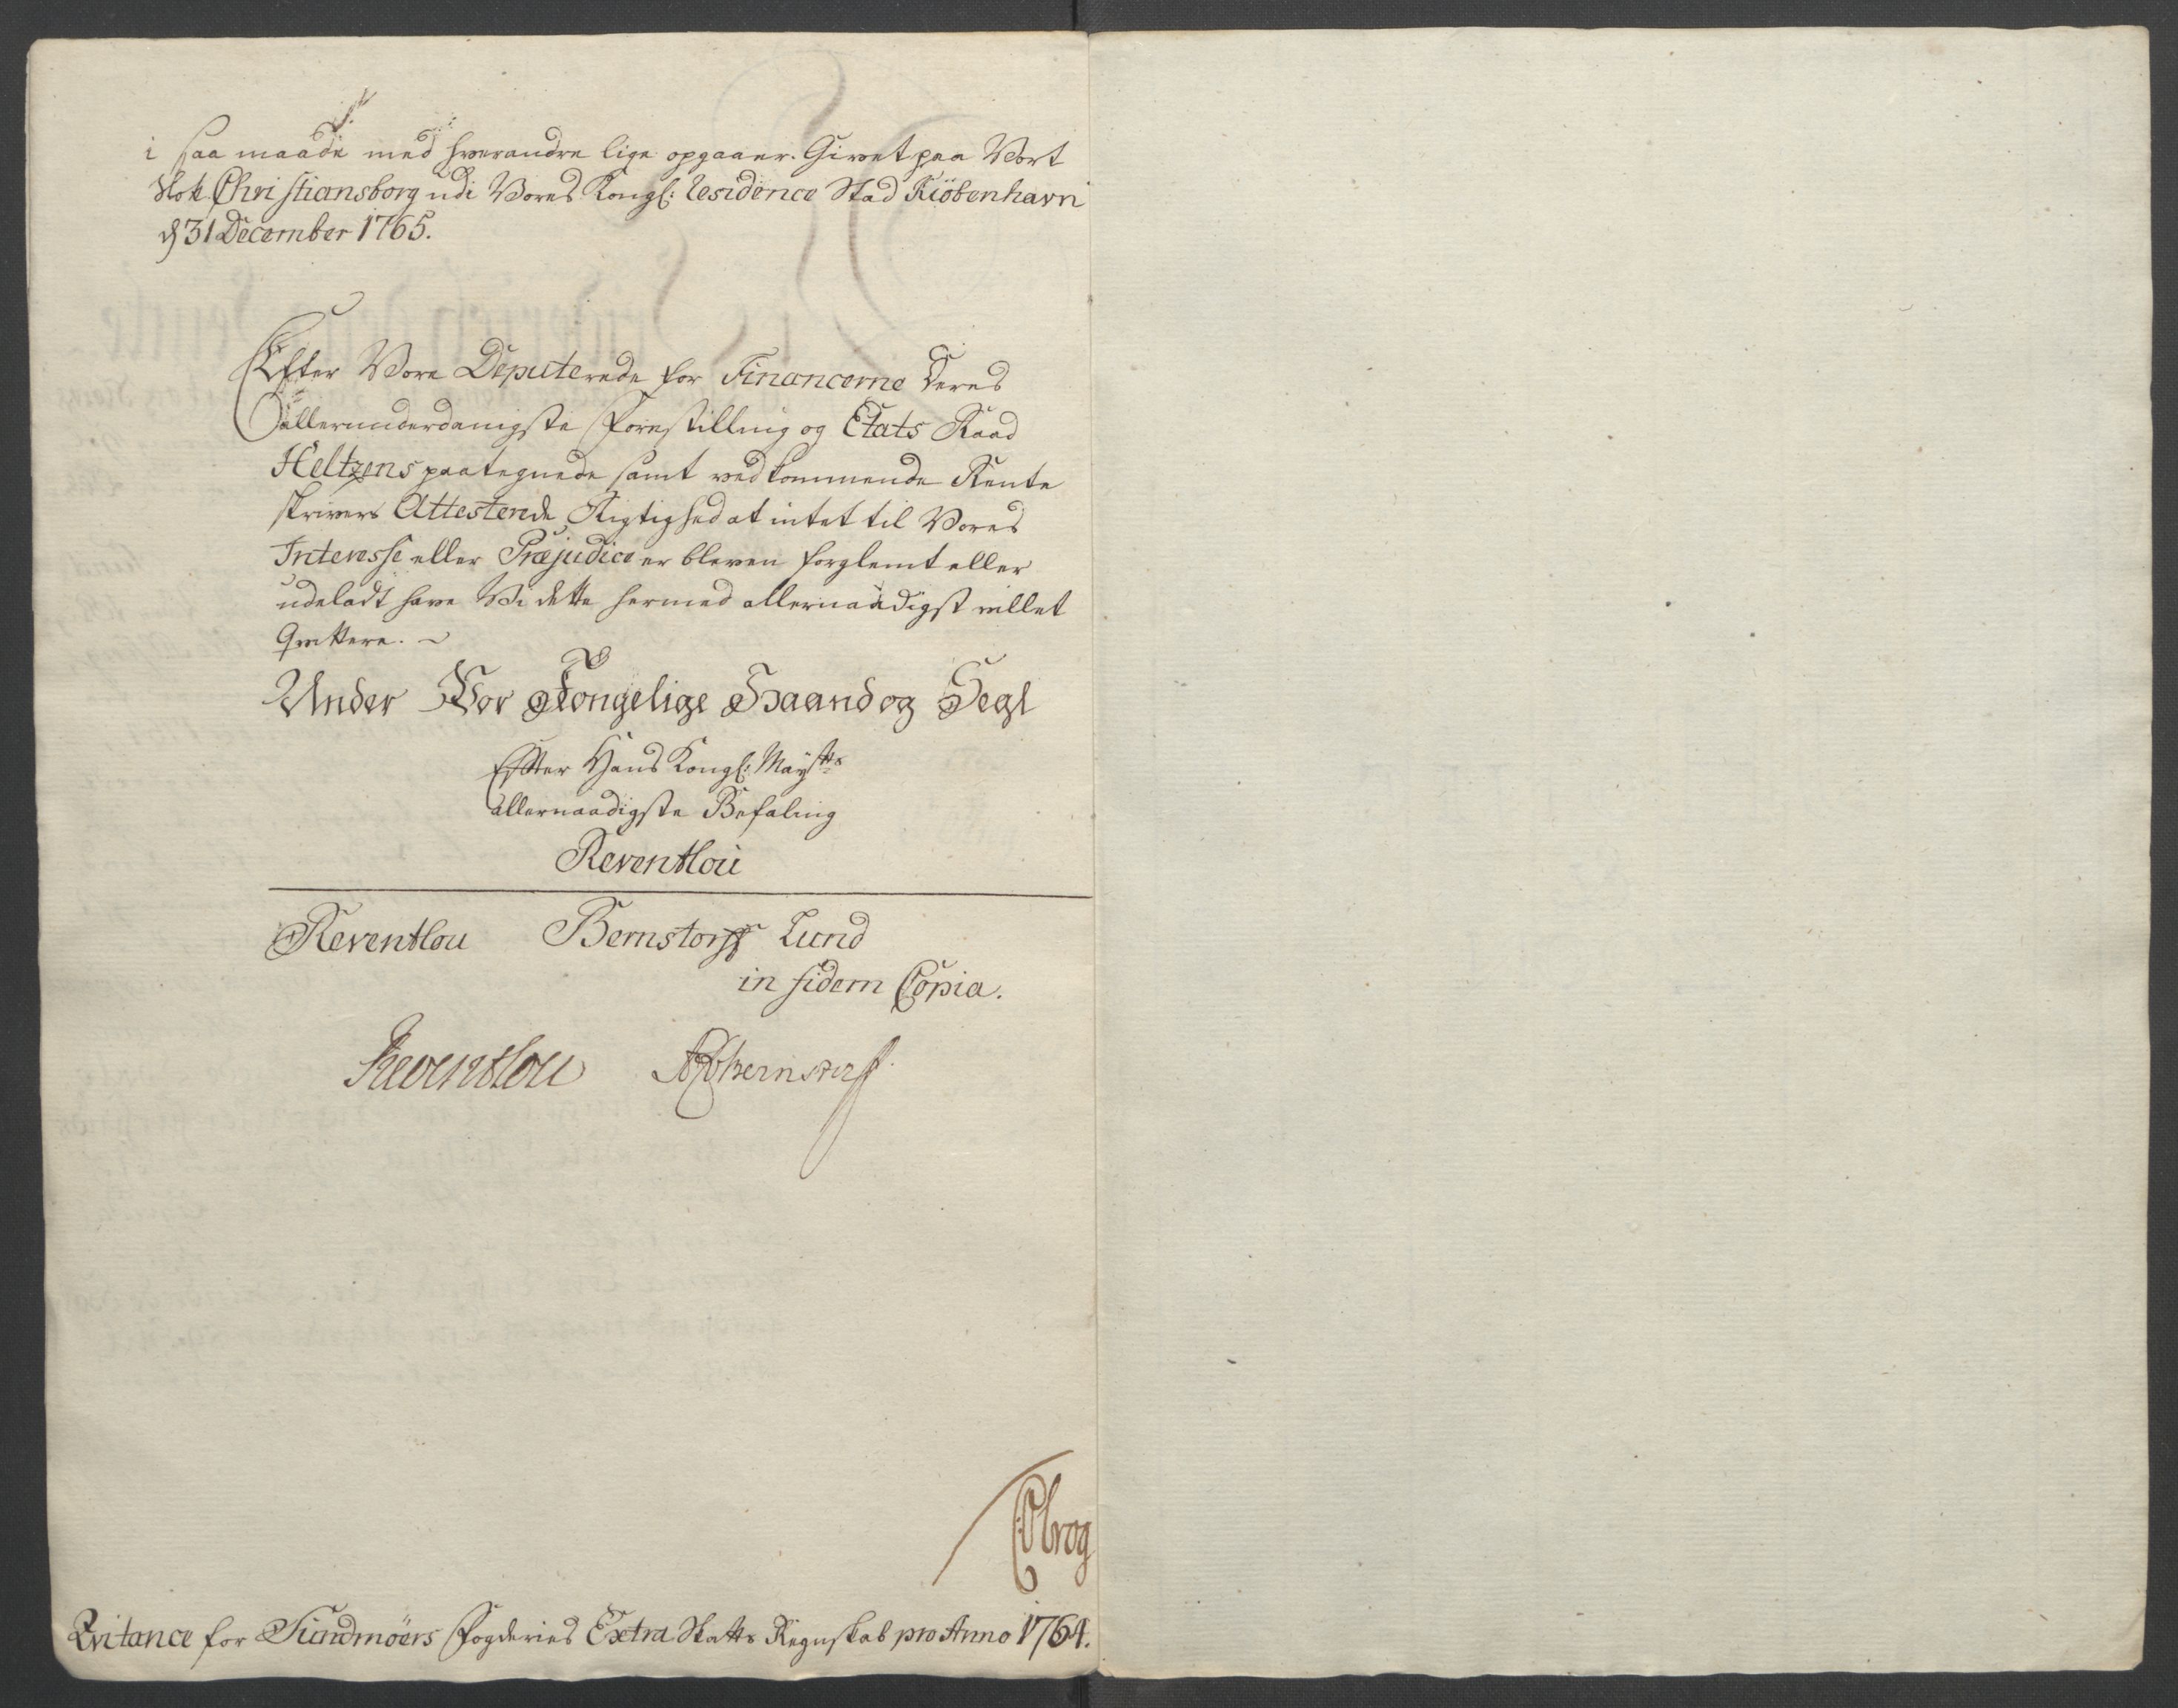 i saa maade med hverandre lige opgaaer. Givet paa Vort
Slot Christiansborg udi Vores Kongl: Residence Stad Kiöbenhavn
d 31 December 1765.
Efter Vore Deputerede for Financerne deres
allerunderdanigste Forestilling og Etats Raad
Heltzens paategnede samt vedkommende Rente
skrivers Attesterede Rigtighed at intet til Vores
Interesse eller Præjudice er bleven forglemt eller
udeladt have Vi dette hermed allernaadigst villet
Qvittere.
Under Vor Kongelige Haand og Segl
Efter Hans Kongl: Mayts
allernaadigste Befaling
Reventlou
Reventlou Bernstorff Lund
in fidem Copia.
Reventlou Bernstorff
Qvitance for Sundmöers Fogderies Extra Skatts Regnskab pro Anno 1764.